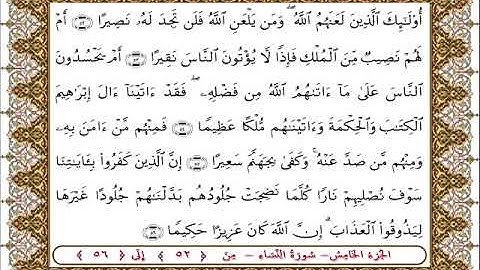 أُوْلَٰٓئِكَ ٱلَّذِينَ لَعَنَهُمُ ٱللَّهُۖ وَمَن يَلْعَنِ ٱللَّهُ فَلَن تَجِدَ لَهُۥ نَصِيرًا ﴿٥٢﴾ أَمْ
لَهُمْ نَصِيبٌ مِّنَ ٱلْمُلْكِ فَإِذًا لَّا يُؤْتُونَ ٱلنَّاسَ نَقِيرًا ﴿٥٣﴾ أَمْ يَحْسُدُونَ
ٱلنَّاسَ عَلَىٰ مَآ ءَاتَىٰهُمُ ٱللَّهُ مِن فَضْلِهِۦۖ فَقَدْ ءَاتَيْنَآ ءَالَ إِبْرَٰهِيمَ
ٱلْكِتَٰبَ وَٱلْحِكْمَةَ وَءَاتَيْنَٰهُم مُّلْكًا عَظِيمًا ﴿٥٤﴾ فَمِنْهُم مَّنْ ءَامَنَ بِهِۦ
وَمِنْهُم مَّن صَدَّ عَنْهُۚ وَكَفَىٰ بِجَهَنَّمَ سَعِيرًا ﴿٥٥﴾ إِنَّ ٱلَّذِينَ كَفَرُوا۟ بِـَٔايَٰتِنَا
سَوْفَ نُصْلِيهِمْ نَارًا كُلَّمَا نَضِجَتْ جُلُودُهُم بَدَّلْنَٰهُمْ جُلُودًا غَيْرَهَا
لِيَذُوقُوا۟ ٱلْعَذَابَۗ إِنَّ ٱللَّهَ كَانَ عَزِيزًا حَكِيمًا ﴿٥٦﴾
الجزء الخامس - سورة النساء - من ﴿ ٥٢ ﴾ إلى ﴿ ٥٦ ﴾